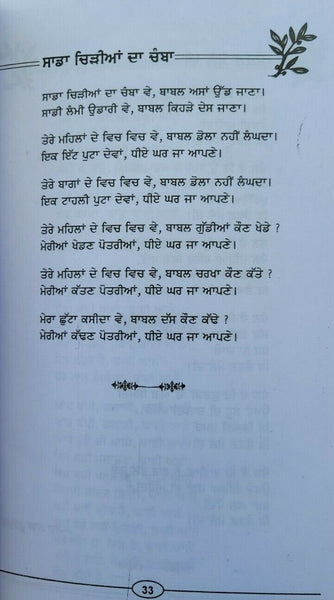 ਸਾਡਾ ਚਿੜੀਆਂ ਦਾ ਚੰਬਾ
ਸਾਡਾ ਚਿੜੀਆਂ ਦਾ ਚੰਬਾ ਵੇ, ਬਾਬਲ ਅਸਾਂ ਉੱਡ ਜਾਣਾ।
ਸਾਡੀ ਲੰਮੀ ਉਡਾਰੀ ਵੇ, ਬਾਬਲ ਕਿਹੜੇ ਦੇਸ ਜਾਣਾ।
ਤੇਰੇ ਮਹਿਲਾਂ ਦੇ ਵਿਚ ਵਿਚ ਵੇ, ਬਾਬਲ ਡੋਲਾ ਨਹੀਂ ਲੰਘਦਾ।
ਇਕ ਇੱਟ ਪੁਟਾ ਦੇਵਾਂ, ਧੀਏ ਘਰ ਜਾ ਆਪਣੇ।
ਤੇਰੇ ਬਾਗਾਂ ਦੇ ਵਿਚ ਵਿਚ ਵੇ, ਬਾਬਲ ਡੋਲਾ ਨਹੀਂ ਲੰਘਦਾ।
ਇਕ ਟਾਹਲੀ ਪੁਟਾ ਦੇਵਾਂ, ਧੀਏ ਘਰ ਜਾ ਆਪਣੇ।
ਤੇਰੇ ਮਹਿਲਾਂ ਦੇ ਵਿਚ ਵਿਚ ਵੇ, ਬਾਬਲ ਗੁੱਡੀਆਂ ਕੌਣ ਖੇਡੇ ?
ਮੇਰੀਆਂ ਖੇਡਣ ਪੋਤਰੀਆਂ, ਧੀਏ ਘਰ ਜਾ ਆਪਣੇ।
ਤੇਰੇ ਮਹਿਲਾਂ ਦੇ ਵਿਚ ਵਿਚ ਵੇ, ਬਾਬਲ ਚਰਖਾ ਕੌਣ ਕੱਤੇ ?
ਮੇਰੀਆਂ ਕੱਤਣ ਪੋਤਰੀਆਂ, ਧੀਏ ਘਰ ਜਾ ਆਪਣੇ।
ਮੇਰਾ ਛੁੱਟਾ ਕਸੀਦਾ ਵੇ, ਬਾਬਲ ਦੱਸ ਕੌਣ ਕੱਢੇ ?
ਮੇਰੀਆਂ ਕੱਢਣ ਪੋਤਰੀਆਂ, ਧੀਏ ਘਰ ਜਾ ਆਪਣੇ।
33